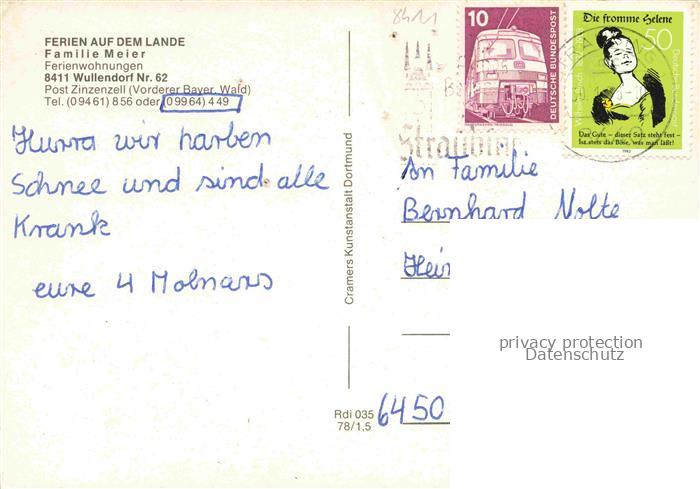 8411
FERIEN AUF DEM LANDE
Familie Meier
Ferienwohnungen
8411 Wullendorf Nr. 62
Post Zinzenzell (Vorderer Bayer. Wald)
Tel. (0 94 61) 8 56 oder (0 99 64) 4 49
Hurra wir harben
Schnee und sind alle
Krank
eure 4 Molnars
Cramers Kunstanstalt Dortmund
Rdi 035
78/1,5
10
DEUTSCHE BUNDESPOST
Die fromme Helene
50
Deutsche Bundespost
Das Gute – dieser Satz steht fest –
Ist stets das Böse, was man läßt!
1982
An Familie
Bernhard Nolte
6450
privacy protection
Datenschutz